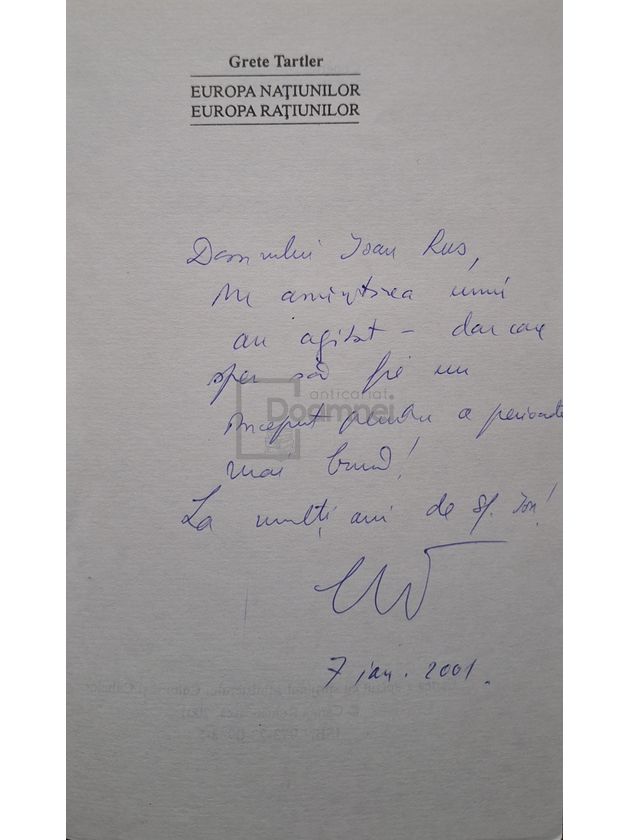 Grete Tartler
EUROPA NAŢIUNILOR
EUROPA RAŢIUNILOR
Domnului Ioan Rus,
în amintirea unui
an agitat – dar care
sper să fie un
anticariat
Doamnei
început pentru o perioadă
mai bună!
La mulți ani de Sf. Ion!
7 ian. 2001.